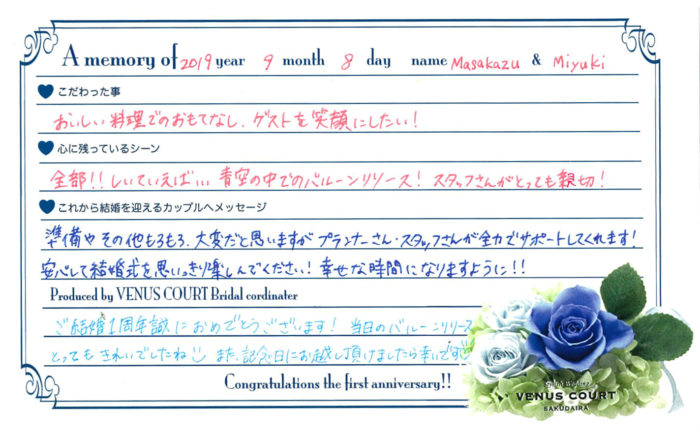 A memory of 2019 year 9 month 8 day name Masakazu & Miyuki
こだわった事
おいしい料理でのおもてなし、ゲストを笑顔にしたい!
心に残っているシーン
全部!! しいていえば… 青空の中でのバルーンリリース! スタッフさんがとっても親切!
これから結婚を迎えるカップルへメッセージ
準備やその他もろもろ、大変だと思いますがプランナーさん・スタッフさんが全力でサポートしてくれます!
安心して結婚式を思いっきり楽しんでください! 幸せな時間になりますように!!
Produced by VENUS COURT Bridal cordinater
ご結婚1周年誠におめでとうございます! 当日のバルーンリリース
とってもきれいでしたね また、記念日にお越し頂けましたら幸いです
Congratulations the first anniversary!!
VENUS COURT
SAKUDAIRA